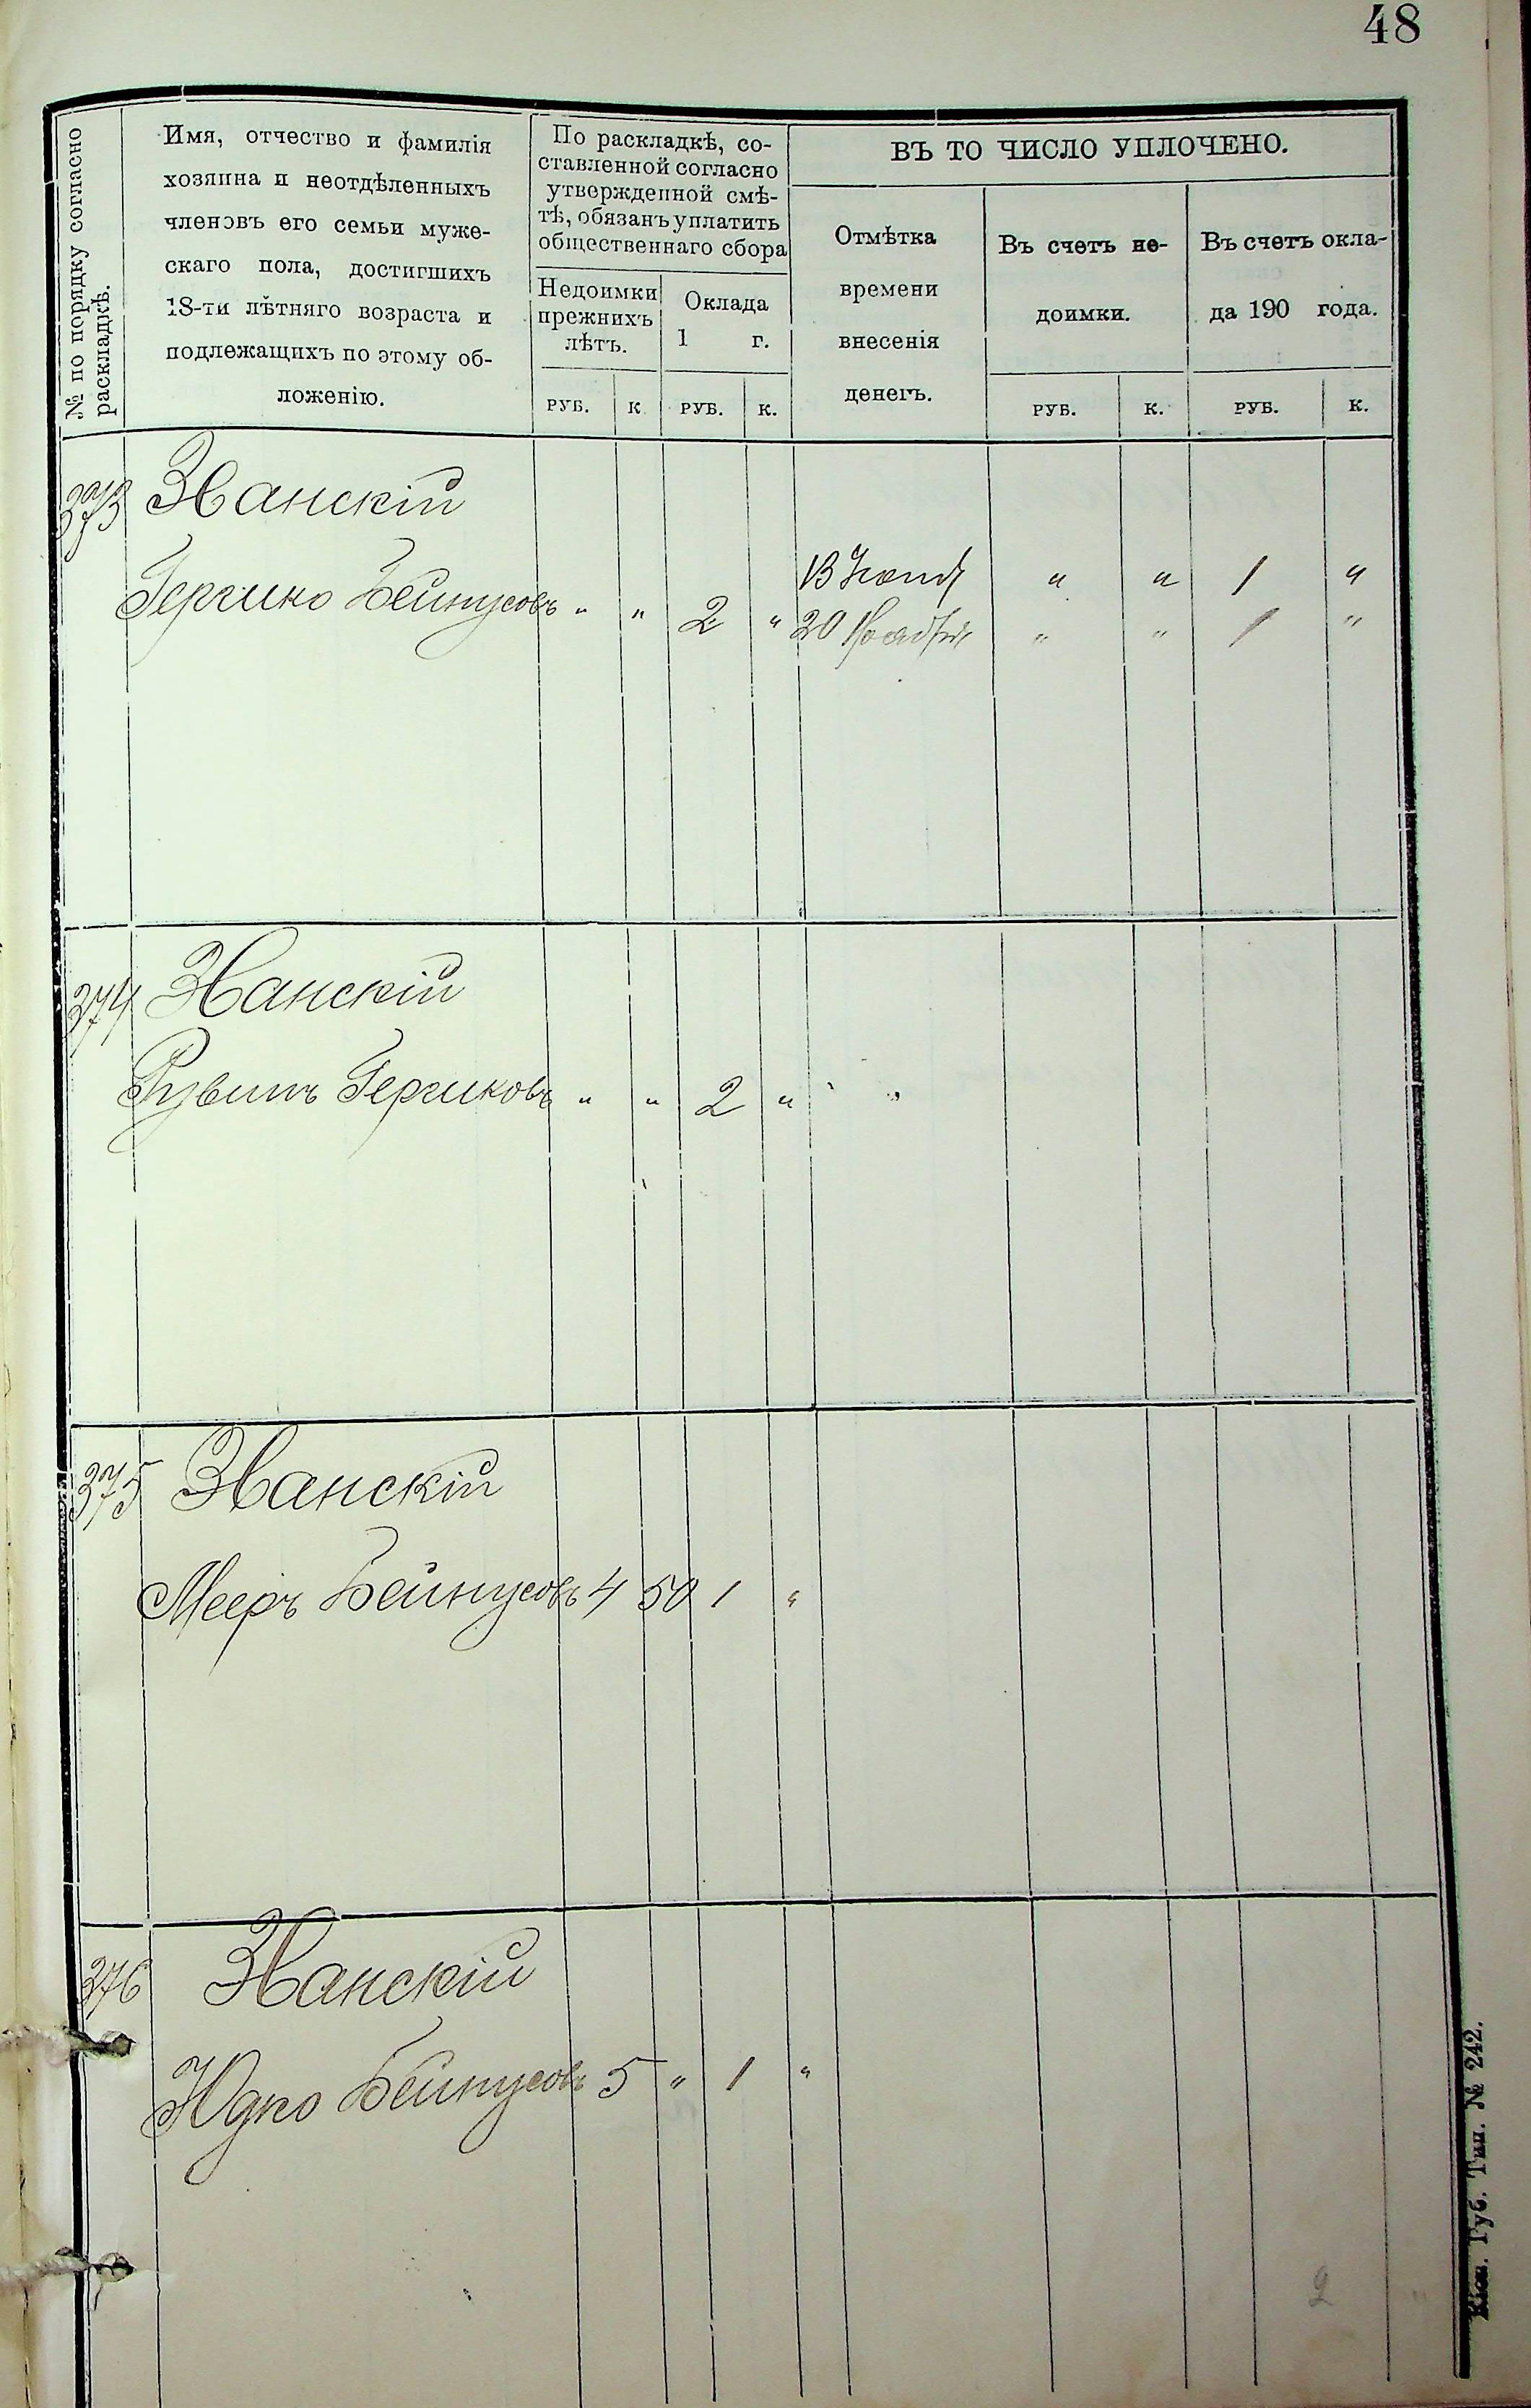 48
№ по порядку согласно
раскладкѣ.
Имя, отчество и фамилія
хозяина и неотдѣленныхъ
членовъ его семьи муже-
скаго пола, достигшихъ
18-ти лѣтняго возраста и
подлежащихъ по этому об-
ложенію.
По раскладкѣ, со-
ставленной согласно
утвержденной смѣ-
тѣ, обязанъ уплатить
общественнаго сбора
Недоимки
прежнихъ
лѣтъ.
Оклада
1 г.
РУБ. К РУБ. К.
ВЪ ТО ЧИСЛО УПЛОЧЕНО.
Отмѣтка
времени
внесенія
денегъ.
Въ счетъ не-
доимки.
РУБ. К.
Въ счетъ окла-
да 190 года.
РУБ. К.
373 Званскій
13 " " 1 "
Гершко Бейнусовъ " " 2 " 20 Ноября " " 1 "
374 Званскій
Рувинъ Гершковъ " " 2 "
375 Званскій
Мееръ Бейнусовъ 4 50 1 "
376 Званскій
Юдко Бейнусовъ 5 " 1 "
2 "
Кіев. Губ. Тип. № 242.